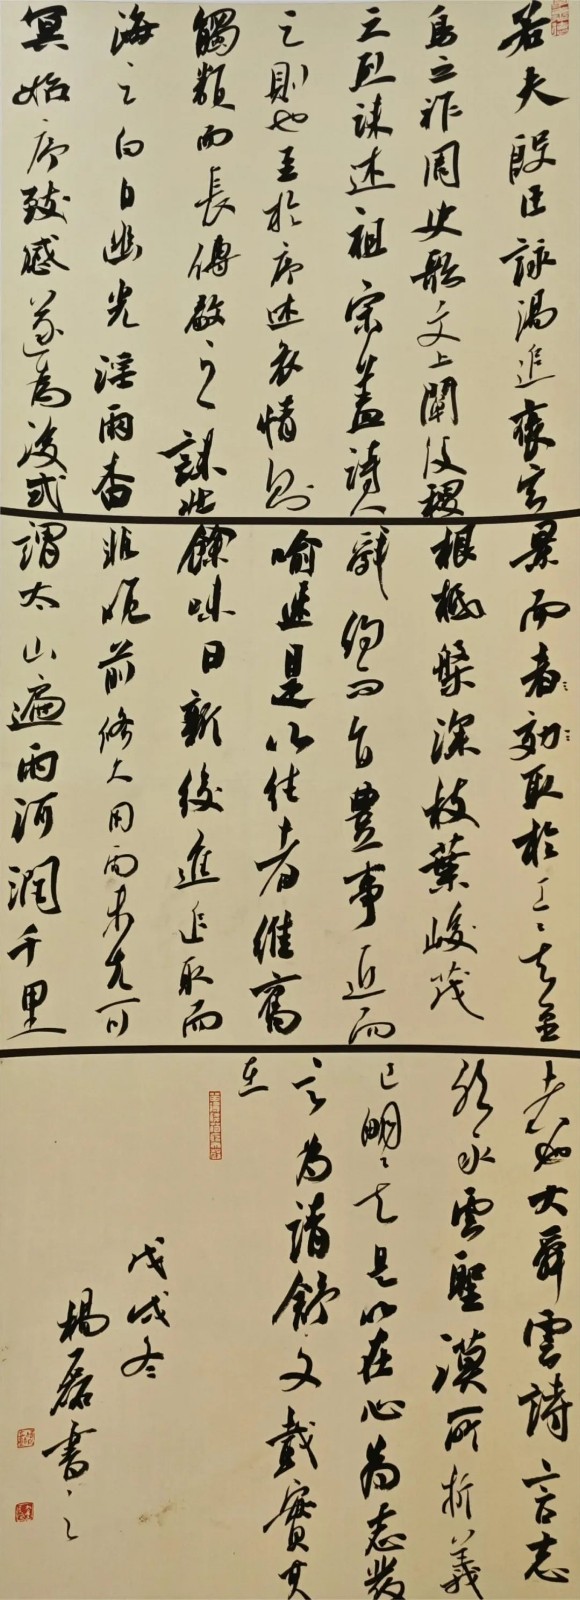 若夫殷臣詠湯追褒玄
鳥之祚周史歌文上闡后稷
之烈誄述祖宗蓋詩人
之則也至於序述哀情則
觸類而長傅毅之誄北
海云白日幽光淫雨杳
冥始序致感遂為後式
景而者効取於工矣至
根柢槃深枝葉峻茂
辭約而旨豐事近而
喻遠是以往者雖舊
餘味日新後進追取而
非晚前修久用而未先可
謂太山遍雨河潤千里
大舜雲詩言志
永雲聖漠所析義
已明矣是以在心為志發
言為詩舒文載實其
在
戊戌冬
楊磊書之